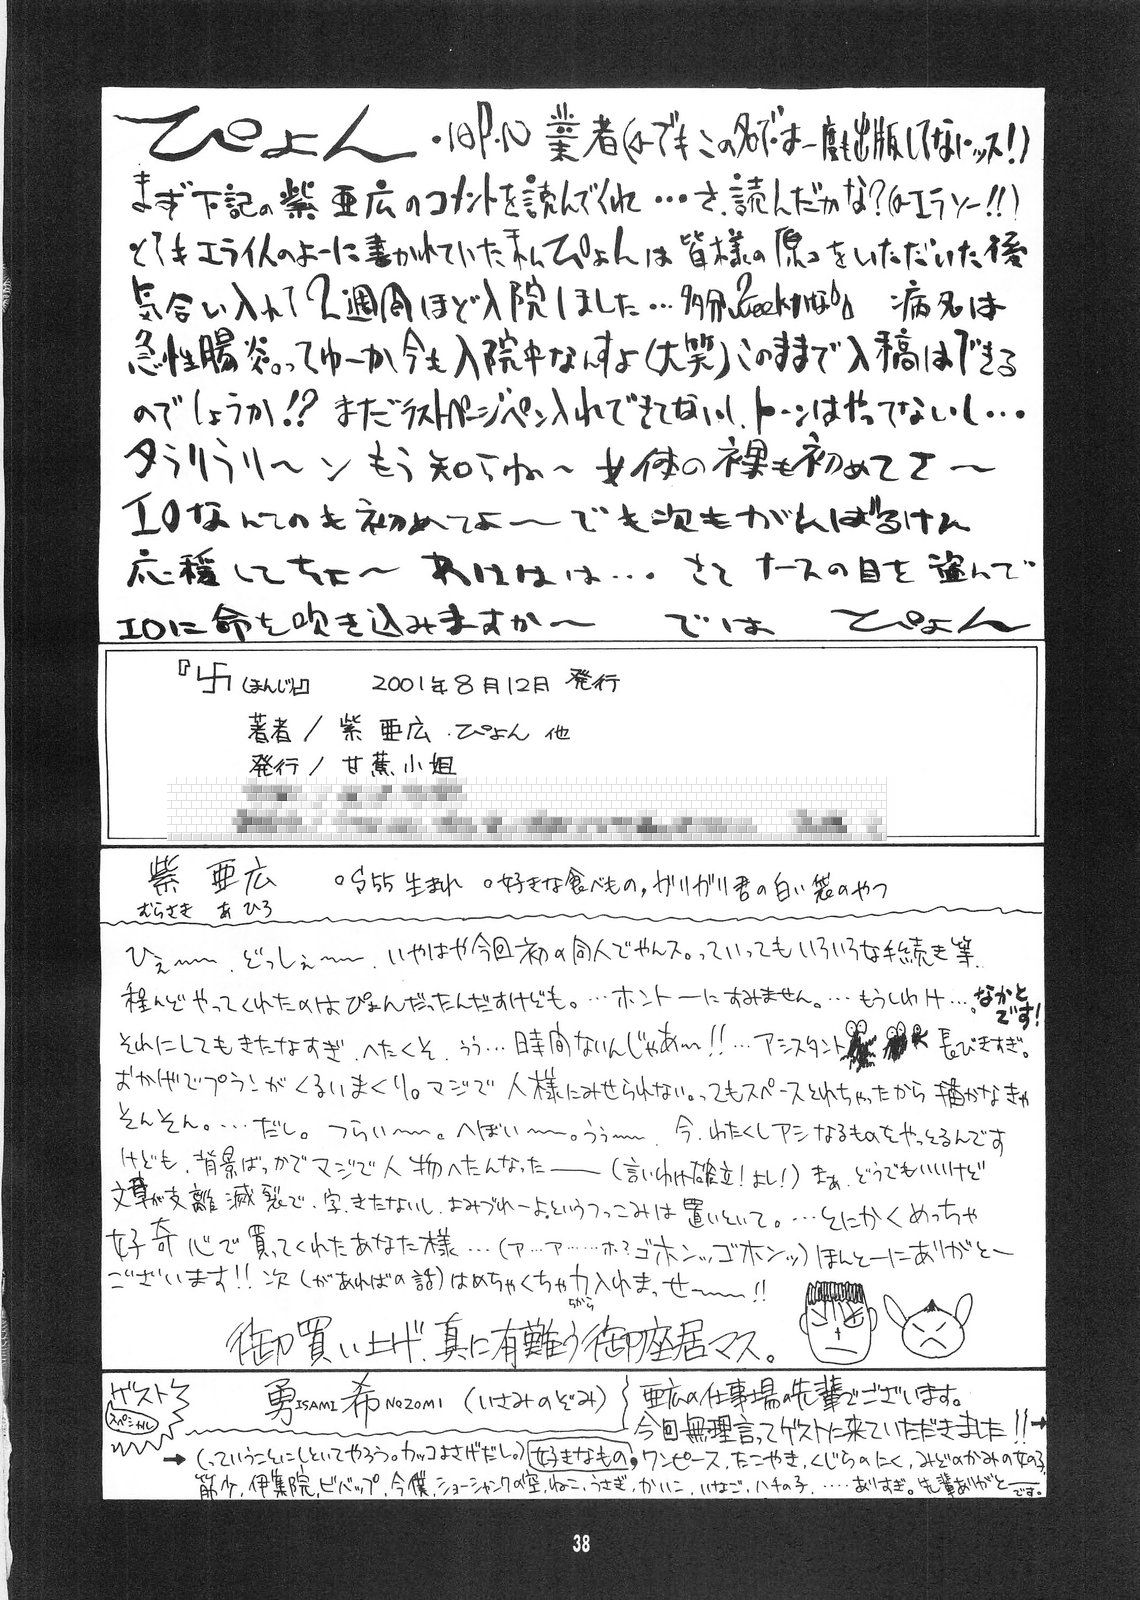 ぴょん 業者(でもこの名では一度も出版してないッス!)
まず下記の紫亜広のコメントを読んでくれ…さ、読んだかな?(エラソー!!)
とてもエライ人のよーに書かれていた私ぴょんは皆様の原コをいただいた後
気合い入れて2週間ほど入院しました…多分 病名は
急性腸炎。ってゆーか今も入院中なんすよ(大笑)このままで入稿はできる
のでしょうか!?まだラストページペン入れできてないし、トーンはやってないし…
タラリラリ〜ンもう知らね〜女体の裸も初めてさ〜
エロなんてのも初めてよ〜でも次もがんばるけん
応援してちょ〜あははは…。さて ナースの目を盗んで
エロに命を吹き込みますか〜 では ぴょん
『卍(まんじ)』 2001年8月12日 発行
著者/紫 亜広・ぴょん 他
発行/甘蕉小姐
紫 亜広 。S55生まれ 。好きな食べもの,ガリガリ君の白い袋のやつ
むらさき あ ひろ
ひぇ〜〜、どっしぇ〜〜、いやはや今回初の同人でやんス。っていってもいろいろな手続き等、
殆んどやってくれたのはぴょんだったんだすけども。…ホントーにすみません。…もうしわけ…なかとです!
それにしてもきたなすぎ、へたくそ、うぅ…時間ないんじゃあ〜!!…アシスタント 長びきすぎ。
おかげでプランがくるいまくり。マジで人様にみせられない。ってもスペースとれちゃったから描かなきゃ
そんそん。…だし。つらい〜〜。へぼい〜〜。うぅ〜〜、今、わたくしアシなるものをやっとるんです
けども、背景ばっかでマジで人物へたんなった――(言いわけ確立!よし!)まぁ、どうでもいいけど
文章が支離滅裂で、字、きたないし、よみづれーよ。というつっこみは置いといて。…とにかくめっちゃ
好奇心で買ってくれたあなた様…(ア…ア……ホ?ゴホンッッゴホンッ)ほんとーにありがとー
ございます!!次(があればの話)はめちゃくちゃ力入れまっせ〜〜!!
ちから
御買い上げ、真に有難う御座居マス。
ゲスト スペシャル 勇ISAMI 希NOZOMI (いさみのぞみ) 亜広の仕事場の先輩でございます。
今回無理言ってゲストに来ていただきました!!→
→(っていうことにしといてやろう。カッコよさげだし。)好きなもの,ワンピース、たこやき、くじらのにく、みどりのかみの女の子、
筋少、伊集院、ビバップ、今僕、ショーシャンクの空、ねこ、うさぎ、かいこ、いなご、ハチの子、……ありすぎ。先輩ありがとーです。
38